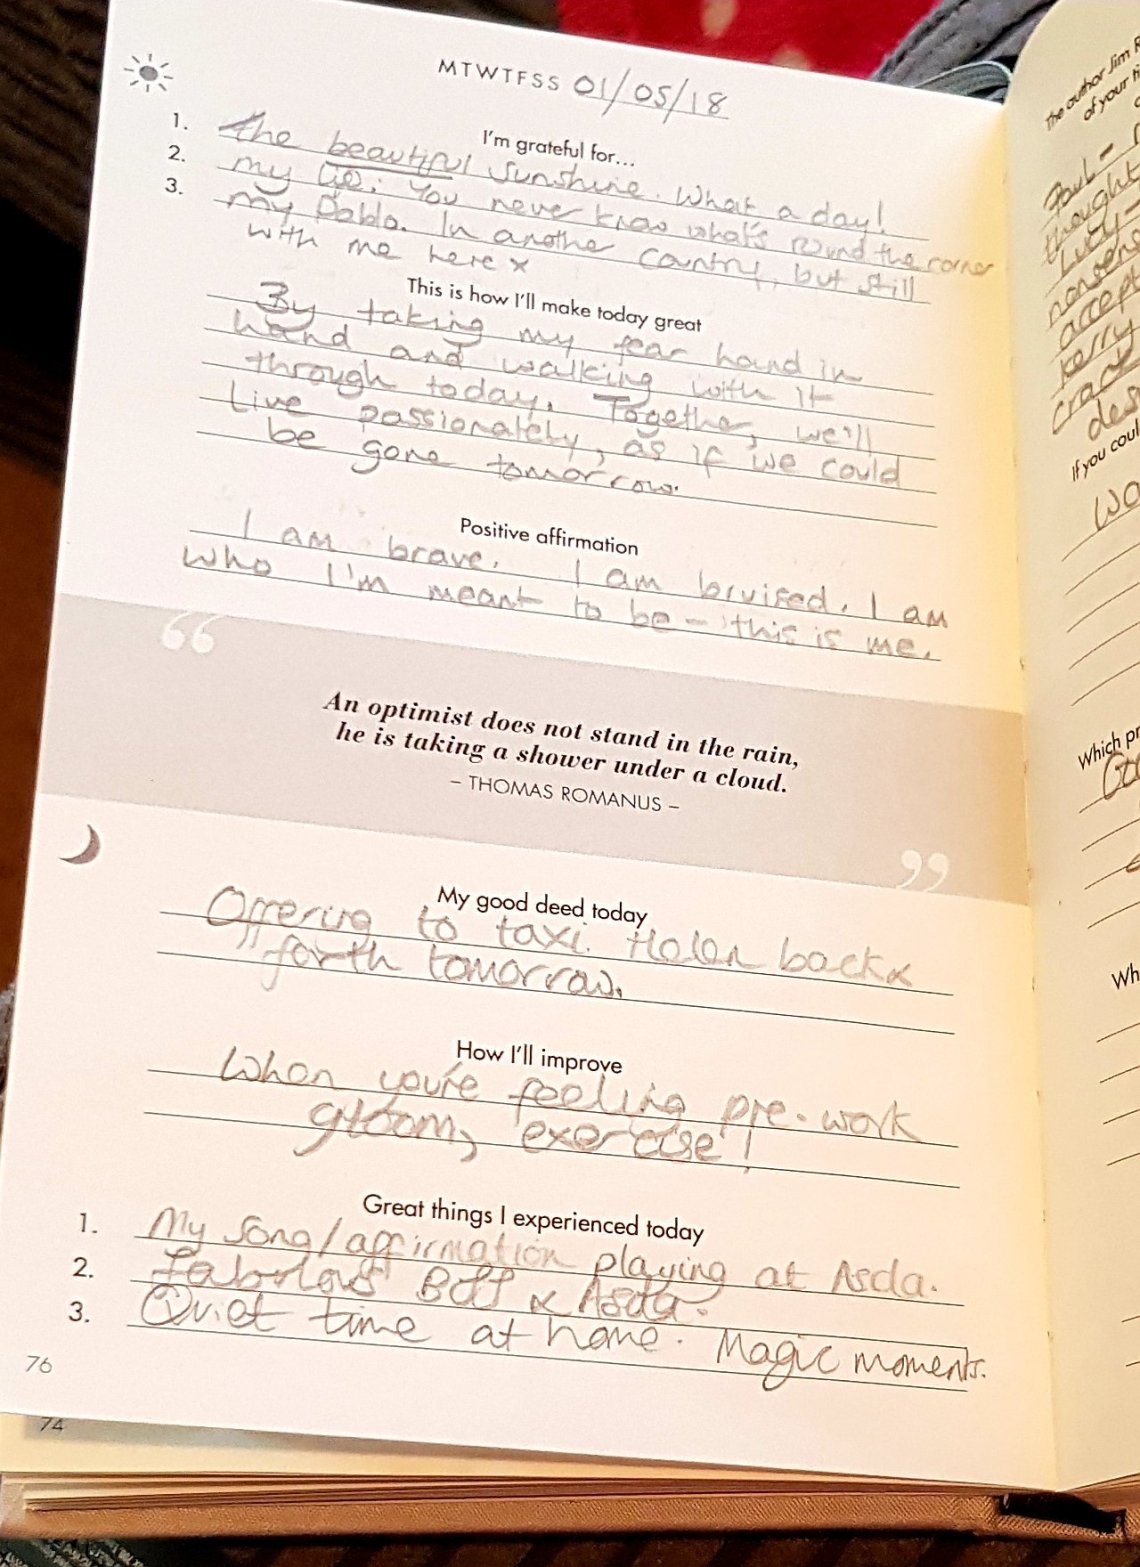 MTWTFSS 01/05/18
I'm grateful for...
1. the beautiful sunshine. What a day!
2. my life. You never know what's round the corner
3. my Pablo. In another country, but still
with me here x
This is how I'll make today great
By taking my fear hand in
hand and walking with it
through today. Together, we'll
live passionately, as if we could
be gone tomorrow.
Positive affirmation
I am brave. I am bruised. I am
who I'm meant to be - this is me.
“
An optimist does not stand in the rain,
he is taking a shower under a cloud.
– THOMAS ROMANUS –
”
My good deed today
Offering to taxi Helen back &
forth tomorrow.
How I'll improve
When you're feeling pre-work
gloom, exercise!
Great things I experienced today
1. My song/affirmation playing at Asda.
2. Fabulous Boff & Asda.
3. Quiet time at home. Magic moments.
76
74
The author Jim R
of your ti
Paul -
thought
Lucy -
nonsens
accept
Kerry
crack
des
If you coul
wo
Which pr
Wh